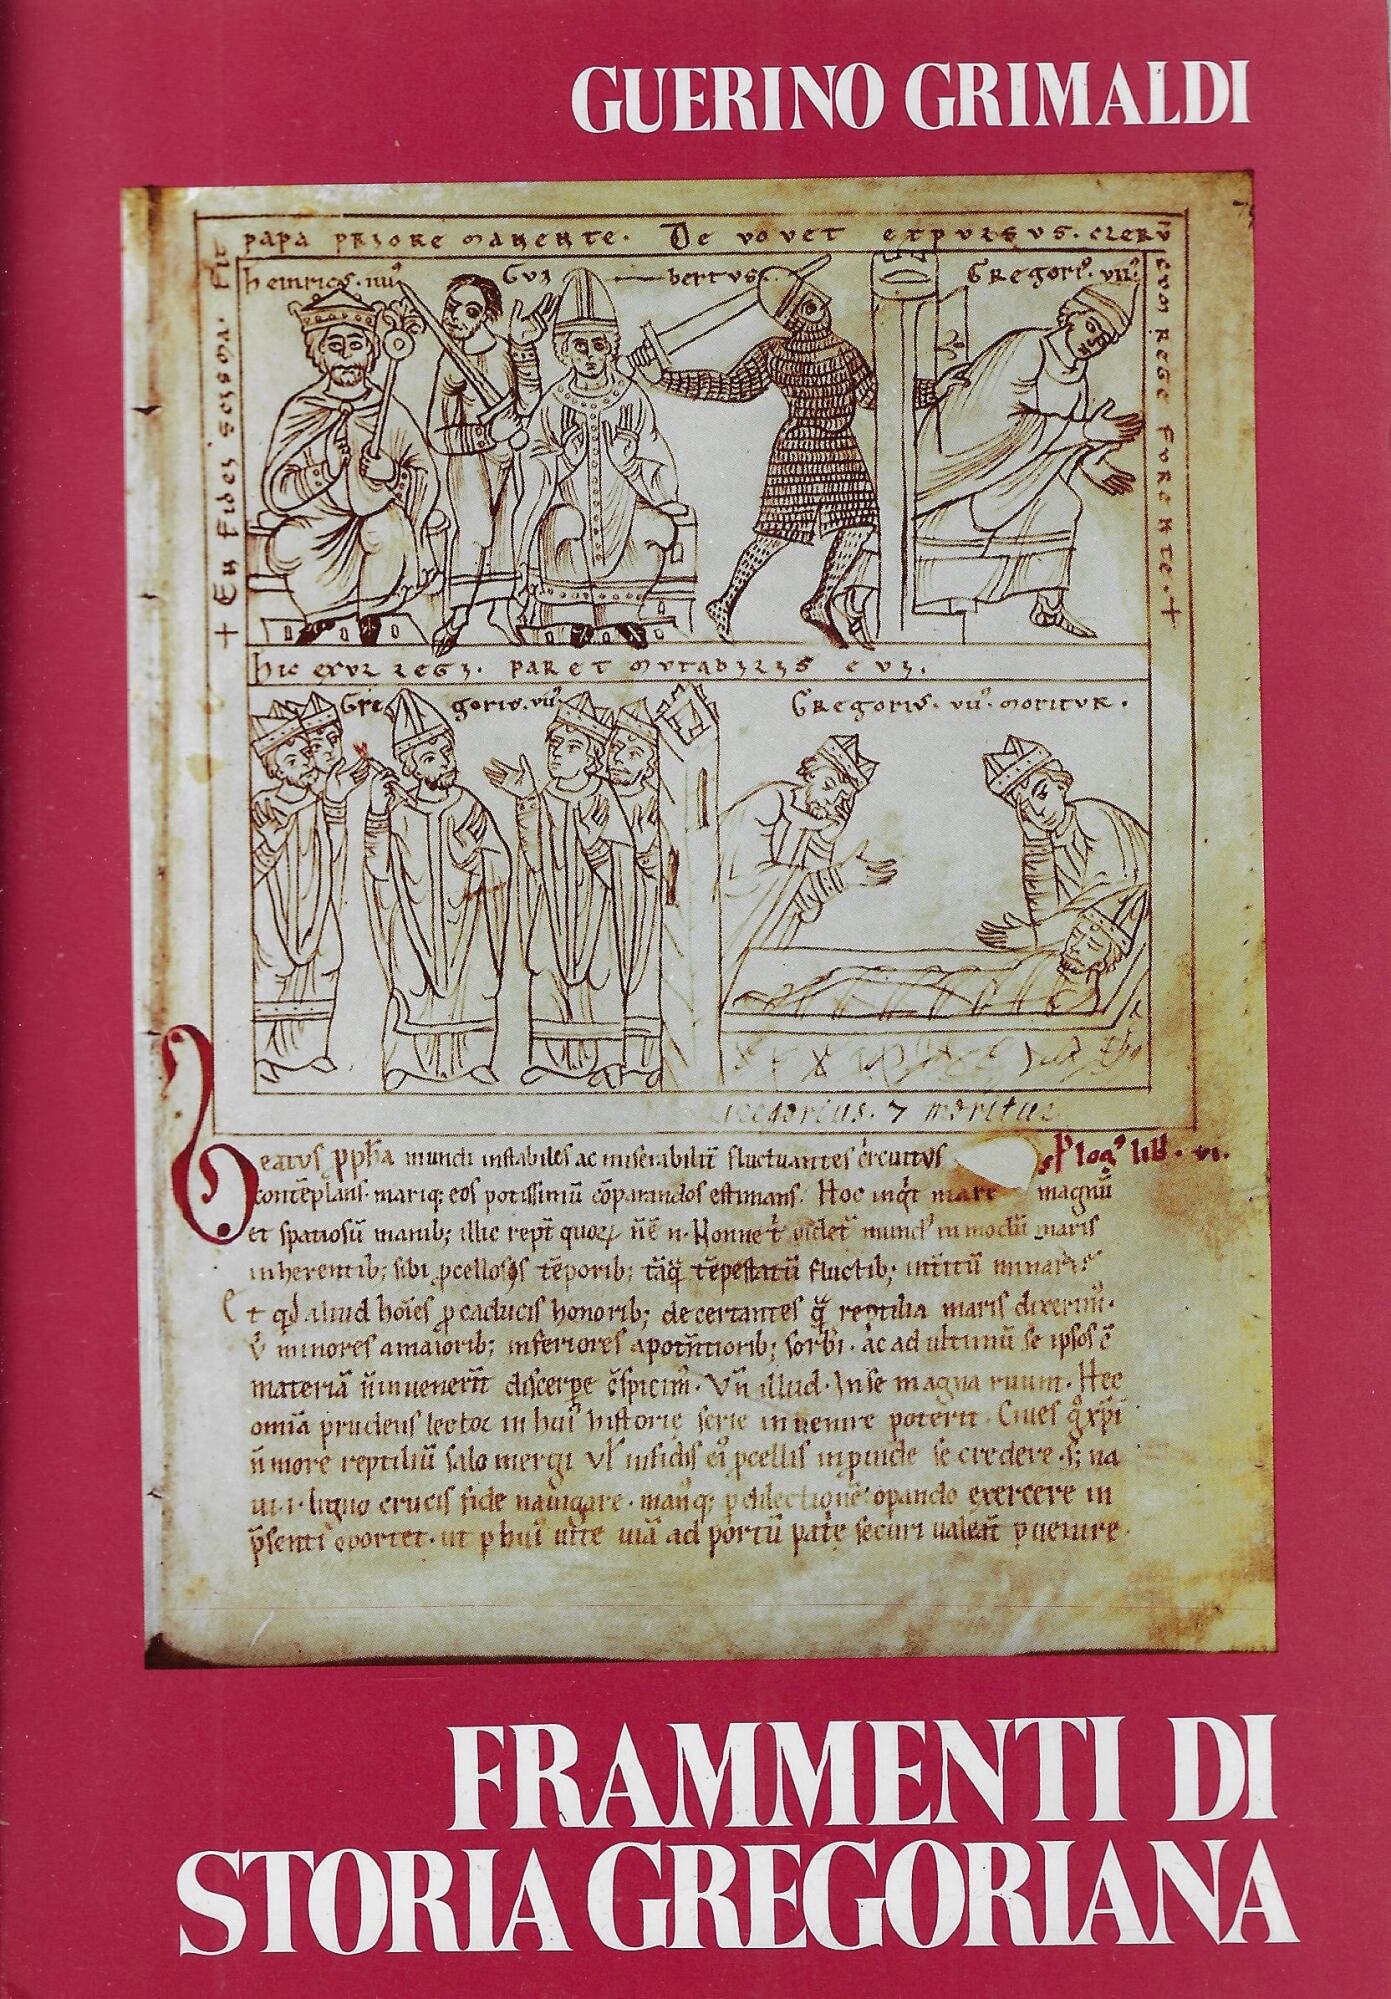 GUERINO GRIMALDI
PAPA PRIORE MANENTE. De vovet expulsus.
heinricus. IIII
Gui bertus.
Gregori. VII.
+ En fides scisma.
rege furente. +
hic exul regi. paret
Gre gorius. VII
Gregorius. VII. moritur.
Gregorius. 7 moritur
Beatus ppha mundi instabiles ac miserabilit fluctuantes circuitus plog lib. VI.
contẽplans. mariq; eos potissimũ cõparandos estimans. Hoc inqt mare magnũ
et spatiosũ manib; illic rept quorum n. Nonne videt mund in modũ maris
inherentib; sibi pcellosis tẽporib; tẽpestatũ fluctib;
Et qd aliud hoies p caducis honorib; decertantes reptilia maris dixerim.
minores a maiorib; inferiores a potentiorib; sorbi. ac ad ultimũ se ipsos
materiã discerpe illud. In se magna ruunt. Hec
omia prudens lector in hui historie serie invenire poterit. Cives
more reptiliũ salo mergi pcellis se credere.
ligno crucis fide navigare. exercere in
psenti oportet. ut p hui vite viã ad portũ securi valeant pvenire.
FRAMMENTI DI
STORIA GREGORIANA